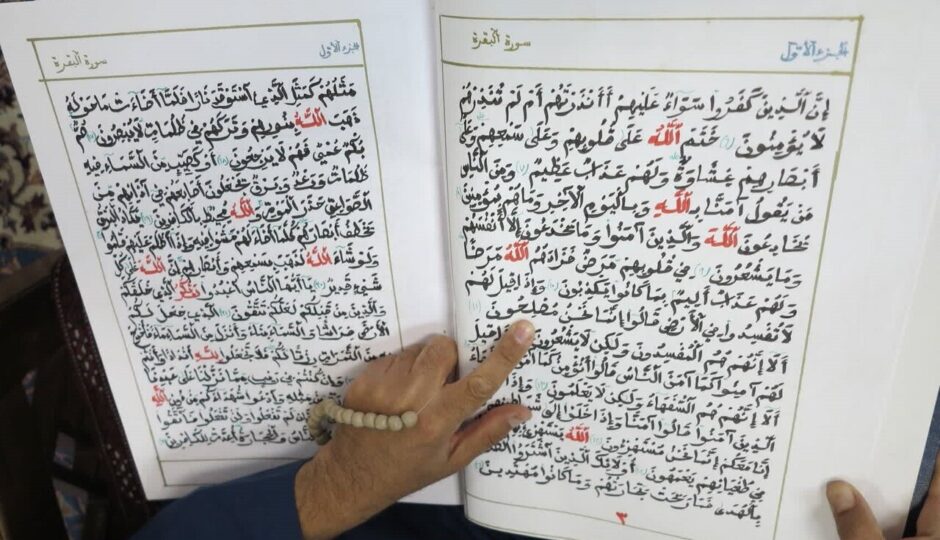 الجزء الأول
سورة البقرة
إِنَّ الَّذِينَ كَفَرُوا سَوَاءٌ عَلَيْهِمْ أَأَنْذَرْتَهُمْ أَمْ لَمْ تُنْذِرْهُمْ
لَا يُؤْمِنُونَ (٦) خَتَمَ اللَّهُ عَلَى قُلُوبِهِمْ وَعَلَى سَمْعِهِمْ وَعَلَى
أَبْصَارِهِمْ غِشَاوَةٌ وَلَهُمْ عَذَابٌ عَظِيمٌ (٧) وَمِنَ النَّاسِ
مَنْ يَقُولُ آمَنَّا بِاللَّهِ وَبِالْيَوْمِ الْآخِرِ وَمَا هُمْ بِمُؤْمِنِينَ (٨)
يُخَادِعُونَ اللَّهَ وَالَّذِينَ آمَنُوا وَمَا يَخْدَعُونَ إِلَّا أَنْفُسَهُمْ
وَمَا يَشْعُرُونَ (٩) فِي قُلُوبِهِمْ مَرَضٌ فَزَادَهُمُ اللَّهُ مَرَضًا
وَلَهُمْ عَذَابٌ أَلِيمٌ بِمَا كَانُوا يَكْذِبُونَ (١٠) وَإِذَا قِيلَ لَهُمْ
لَا تُفْسِدُوا فِي الْأَرْضِ قَالُوا إِنَّمَا نَحْنُ مُصْلِحُونَ (١١)
أَلَا إِنَّهُمْ هُمُ الْمُفْسِدُونَ وَلَكِنْ لَا يَشْعُرُونَ قِيلَ
لَهُمْ آمِنُوا كَمَا آمَنَ النَّاسُ قَالُوا أَنُؤْمِنُ كَمَا آمَنَ
أَلَا إِنَّهُمْ هُمُ السُّفَهَاءُ وَلَكِنْ لَا يَعْلَمُونَ (١٣) وَإِذَا
الَّذِينَ آمَنُوا قَالُوا آمَنَّا وَإِذَا خَلَوْا إِلَى شَيَاطِينِهِمْ
إِنَّا مَعَكُمْ إِنَّمَا نَحْنُ مُسْتَهْزِئُونَ (١٤) اللَّهُ يَسْتَهْزِئُ
فِي طُغْيَانِهِمْ يَعْمَهُونَ (١٥) أُولَئِكَ الَّذِينَ اشْتَرَوُا
بِالْهُدَى فَمَا رَبِحَتْ تِجَارَتُهُمْ وَمَا كَانُوا مُهْتَدِينَ (١٦)
٣
الجزء الأول
سورة البقرة
مَثَلُهُمْ كَمَثَلِ الَّذِي اسْتَوْقَدَ نَارًا فَلَمَّا أَضَاءَتْ مَا حَوْلَهُ
ذَهَبَ اللَّهُ بِنُورِهِمْ وَتَرَكَهُمْ فِي ظُلُمَاتٍ لَا يُبْصِرُونَ (١٧) صُمٌّ
بُكْمٌ عُمْيٌ فَهُمْ لَا يَرْجِعُونَ (١٨) أَوْ كَصَيِّبٍ مِنَ السَّمَاءِ فِيهِ
ظُلُمَاتٌ وَرَعْدٌ وَبَرْقٌ يَجْعَلُونَ أَصَابِعَهُمْ فِي آذَانِهِمْ مِنَ
الصَّوَاعِقِ حَذَرَ الْمَوْتِ وَاللَّهُ مُحِيطٌ بِالْكَافِرِينَ (١٩) يَكَادُ الْبَرْقُ
يَخْطَفُ أَبْصَارَهُمْ كُلَّمَا أَضَاءَ لَهُمْ مَشَوْا فِيهِ وَإِذَا أَظْلَمَ عَلَيْهِمْ قَامُوا
وَلَوْ شَاءَ اللَّهُ لَذَهَبَ بِسَمْعِهِمْ وَأَبْصَارِهِمْ إِنَّ اللَّهَ عَلَى كُلِّ
شَيْءٍ قَدِيرٌ (٢٠) يَا أَيُّهَا النَّاسُ اعْبُدُوا رَبَّكُمُ الَّذِي خَلَقَكُمْ
وَالَّذِينَ مِنْ قَبْلِكُمْ لَعَلَّكُمْ تَتَّقُونَ (٢١) الَّذِي جَعَلَ لَكُمُ
الْأَرْضَ فِرَاشًا وَالسَّمَاءَ بِنَاءً وَأَنْزَلَ مِنَ السَّمَاءِ مَاءً فَأَخْرَجَ
مِنَ الثَّمَرَاتِ رِزْقًا لَكُمْ فَلَا تَجْعَلُوا لِلَّهِ أَنْدَادًا وَأَنْتُمْ
وَإِنْ كُنْتُمْ فِي رَيْبٍ مِمَّا نَزَّلْنَا عَلَى عَبْدِنَا
مِثْلِهِ وَادْعُوا شُهَدَاءَكُمْ مِنْ دُونِ اللَّهِ
لَمْ تَفْعَلُوا وَلَنْ تَفْعَلُوا فَاتَّقُوا
وَالْحِجَارَةُ أُعِدَّتْ لِلْكَافِرِينَ